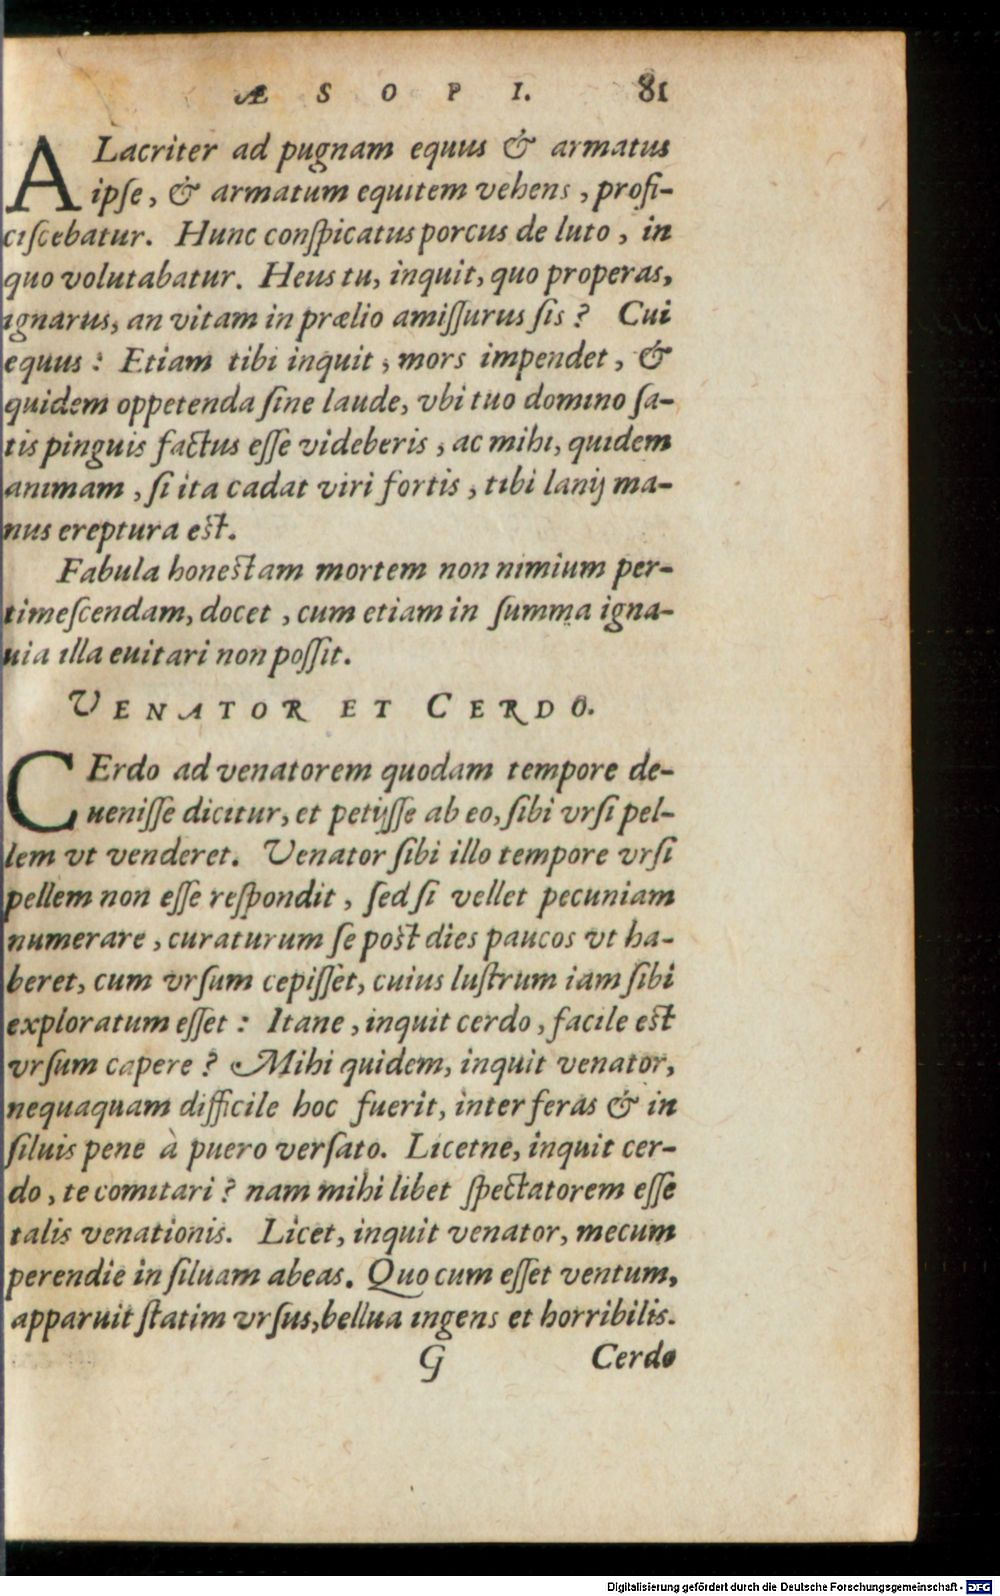 ÆSOPI. 81
ALacriter ad pugnam equus & armatus
ipſe, & armatum equitem vehens, profi-
ciſcebatur. Hunc conſpicatus porcus de luto, in
quo volutabatur. Heus tu, inquit, quo properas,
ignarus, an vitam in prælio amiſſurus ſis? Cui
equus: Etiam tibi inquit, mors impendet, &
quidem oppetenda ſine laude, vbi tuo domino ſa-
tis pinguis factus eſſe videberis, ac mihi, quidem
animam, ſi ita cadat viri fortis, tibi lanij ma-
nus ereptura eſt.
Fabula honeſtam mortem non nimium per-
timeſcendam, docet, cum etiam in ſumma igna-
uia illa euitari non poſſit.
VENATOR ET CERDO.
CErdo ad venatorem quodam tempore de-
ueniſſe dicitur, et petijſſe ab eo, ſibi vrſi pel-
lem vt venderet. Venator ſibi illo tempore vrſi
pellem non eſſe reſpondit, ſed ſi vellet pecuniam
numerare, curaturum ſe poſt dies paucos vt ha-
beret, cum vrſum cepiſſet, cuius luſtrum iam ſibi
exploratum eſſet: Itane, inquit cerdo, facile eſt
vrſum capere? Mihi quidem, inquit venator,
nequaquam difficile hoc fuerit, inter feras & in
ſiluis pene à puero verſato. Licetne, inquit cer-
do, te comitari? nam mihi libet ſpectatorem eſſe
talis venationis. Licet, inquit venator, mecum
perendie in ſiluam abeas. Quo cum eſſet ventum,
apparuit ſtatim vrſus, bellua ingens et horribilis.
G Cerdo
Digitalisierung gefördert durch die Deutsche Forschungsgemeinschaft - DFG